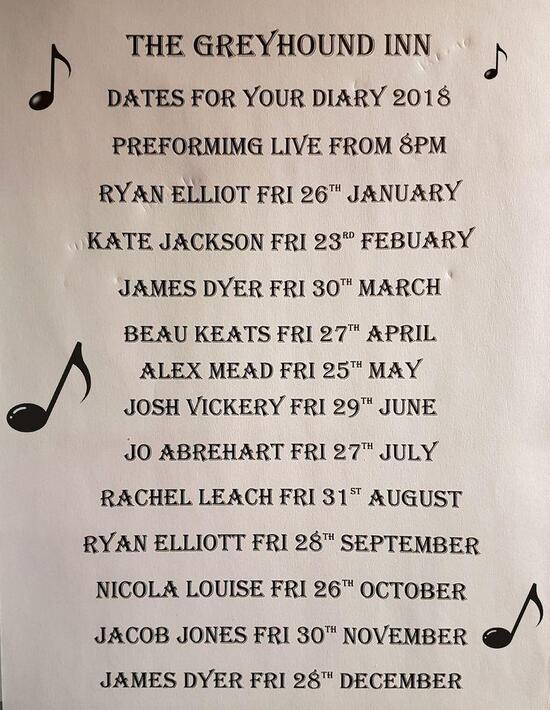 THE GREYHOUND INN
DATES FOR YOUR DIARY 2018
PREFORMIMG LIVE FROM 8PM
RYAN ELLIOT FRI 26TH JANUARY
KATE JACKSON FRI 23RD FEBUARY
JAMES DYER FRI 30TH MARCH
BEAU KEATS FRI 27TH APRIL
ALEX MEAD FRI 25TH MAY
JOSH VICKERY FRI 29TH JUNE
JO ABREHART FRI 27TH JULY
RACHEL LEACH FRI 31ST AUGUST
RYAN ELLIOTT FRI 28TH SEPTEMBER
NICOLA LOUISE FRI 26TH OCTOBER
JACOB JONES FRI 30TH NOVEMBER
JAMES DYER FRI 28TH DECEMBER